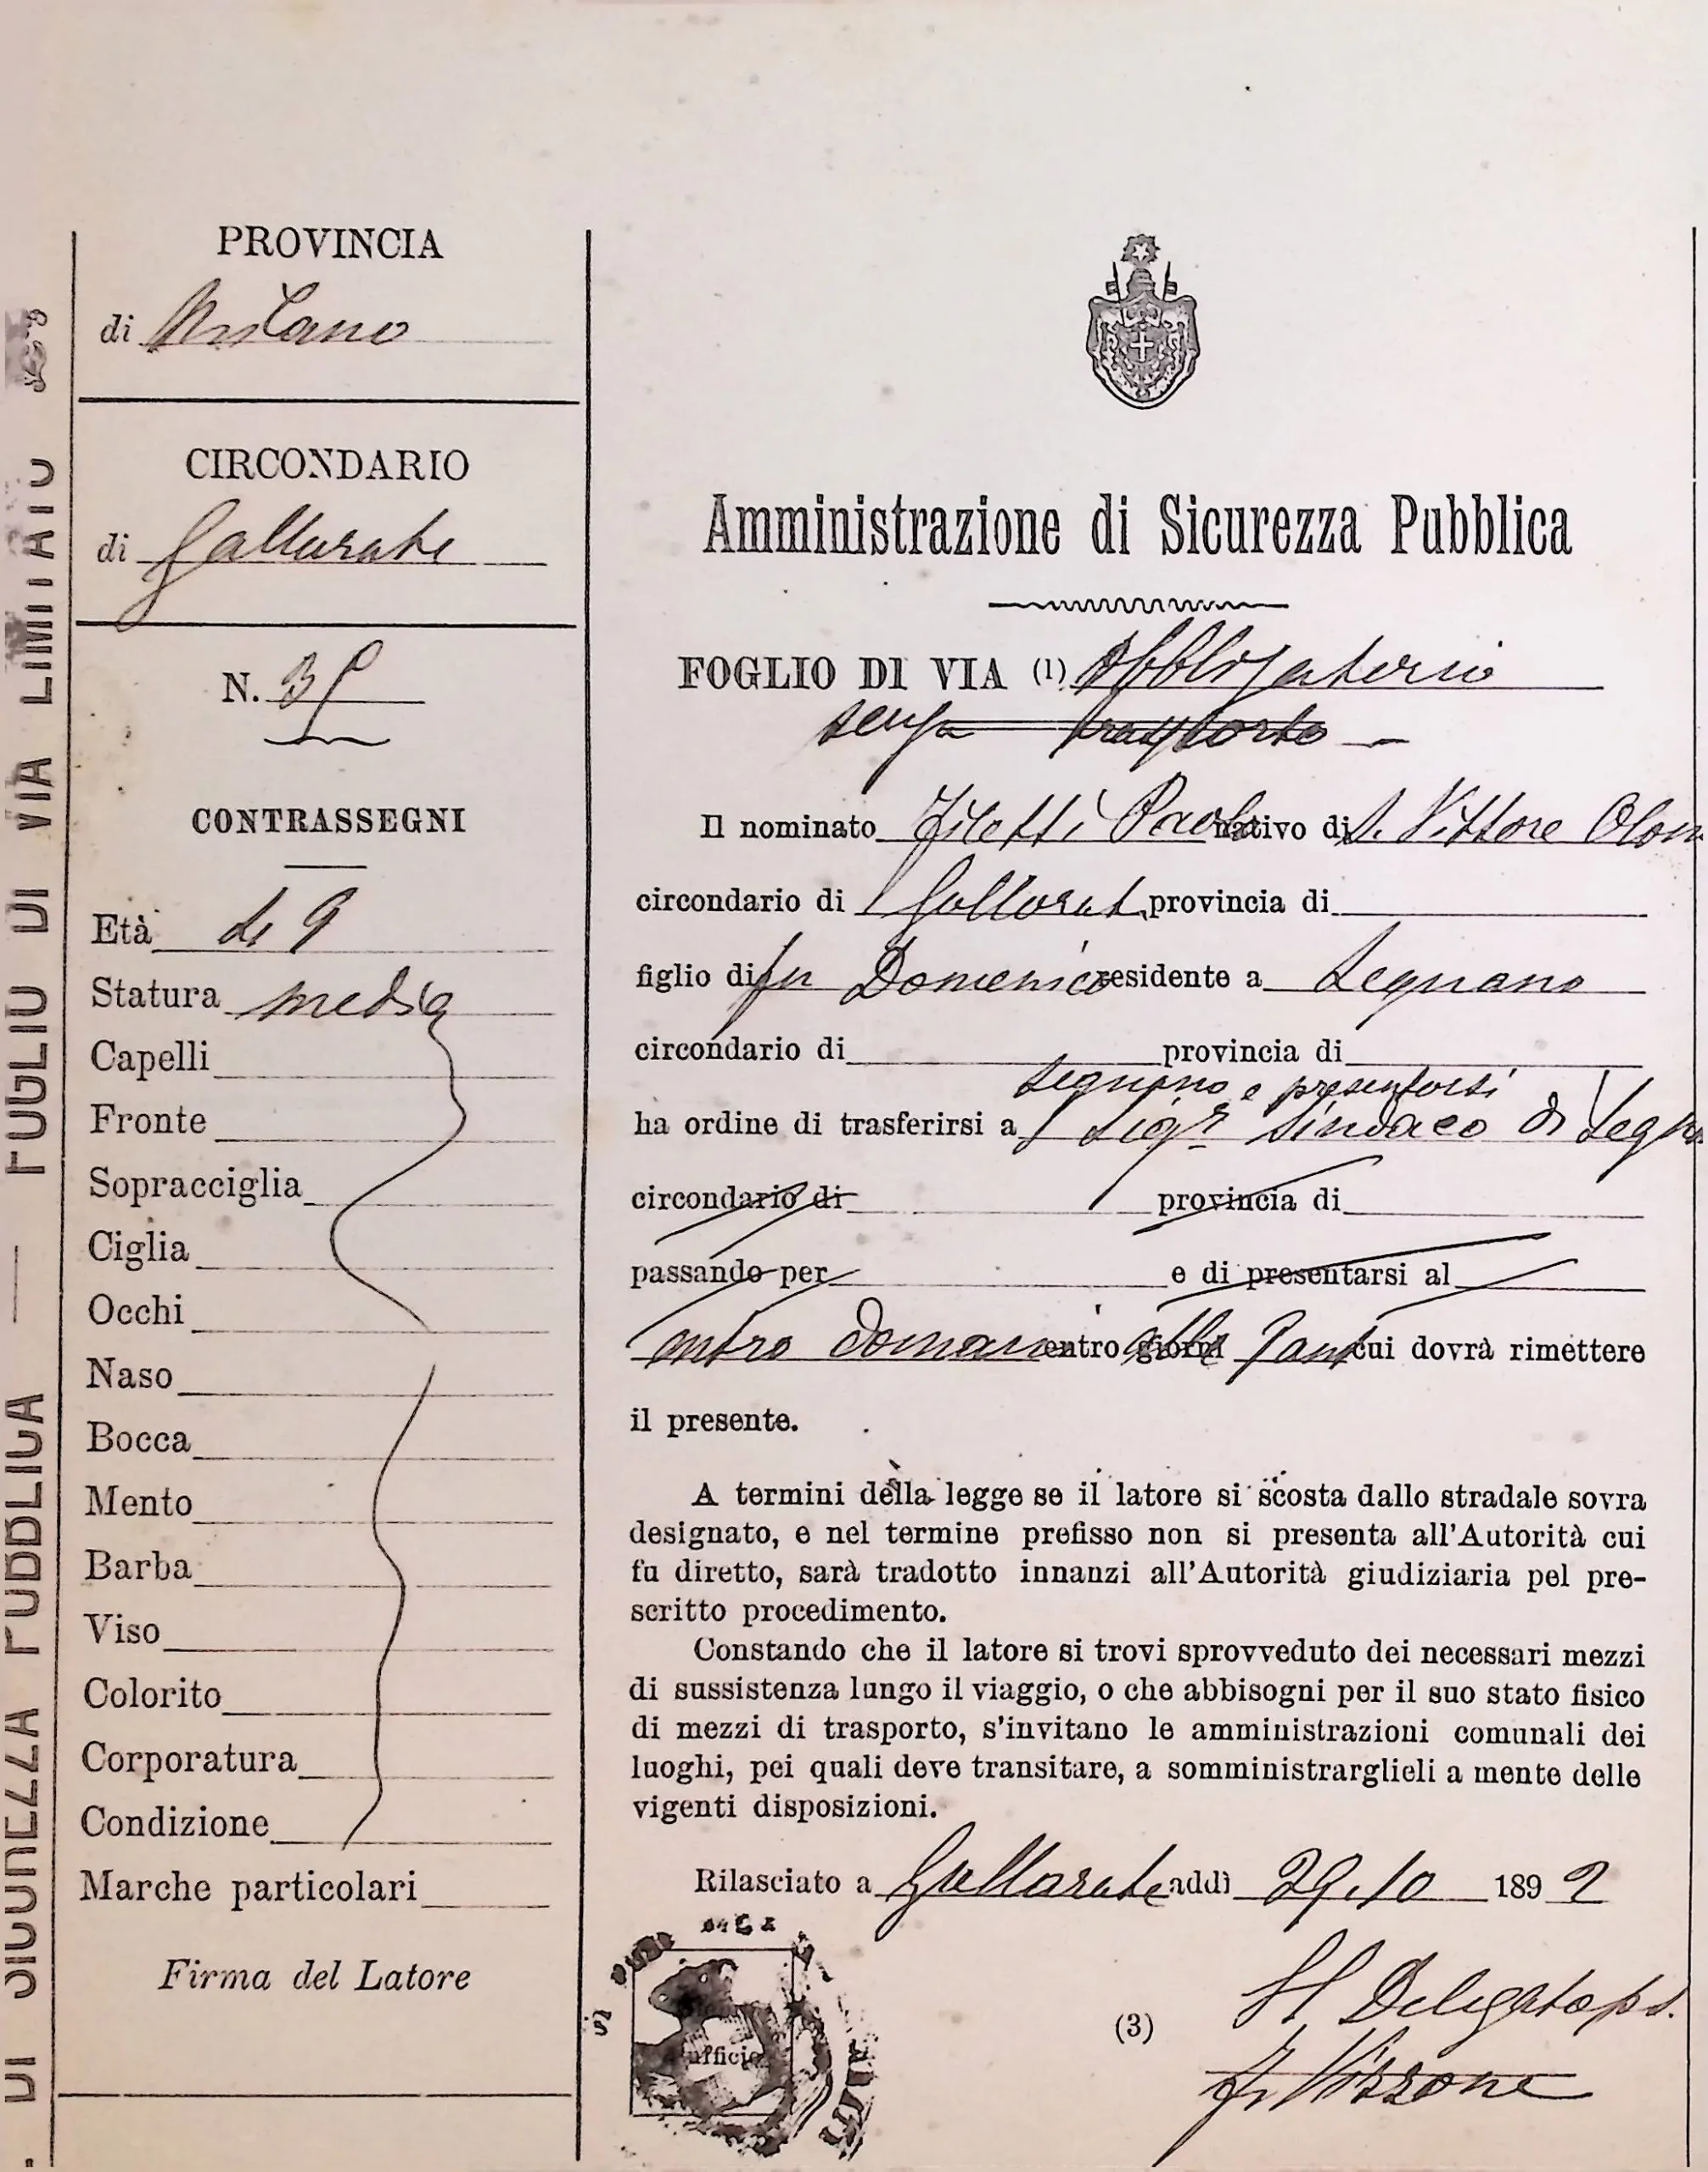 DI SICUREZZA PUBBLICA — FOGLIO DI VIA LIMITATO
PROVINCIA
di Milano
CIRCONDARIO
di Gallarate
N.
CONTRASSEGNI
Età 49
Statura media
Capelli
Fronte
Sopracciglia
Ciglia
Occhi
Naso
Bocca
Mento
Barba
Viso
Colorito
Corporatura
Condizione
Marche particolari
Firma del Latore
Amministrazione di Sicurezza Pubblica
FOGLIO DI VIA (1) Obbligatorio
senza trasporto
Il nominato Paolo nativo di S. Vittore Olon
circondario di Gallarat provincia di
figlio di fu Domenico residente a Legnano
circondario di provincia di
Legnano e presentarsi
ha ordine di trasferirsi a Sigr Sindaco di Legn
circondario di provincia di
passando per e di presentarsi al
entro domani entro giorni alle cui dovrà rimettere
il presente.
A termini della legge se il latore si scosta dallo stradale sovra
designato, e nel termine prefisso non si presenta all'Autorità cui
fu diretto, sarà tradotto innanzi all'Autorità giudiziaria pel pre-
scritto procedimento.
Constando che il latore si trovi sprovveduto dei necessari mezzi
di sussistenza lungo il viaggio, o che abbisogni per il suo stato fisico
di mezzi di trasporto, s'invitano le amministrazioni comunali dei
luoghi, pei quali deve transitare, a somministrarglieli a mente delle
vigenti disposizioni.
Rilasciato a Gallarate addì 29.10 1892
ufficio
(3)
Il Delegato p.s.